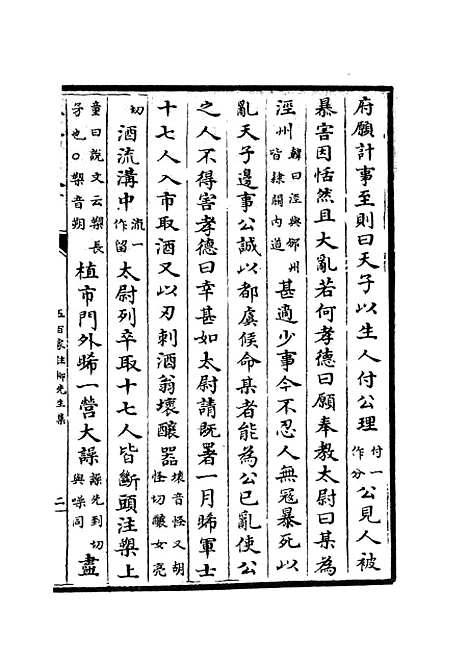 府願計事至則曰天子以生人付公理付一作分公見人被
暴害因恬然且大亂若何孝德曰願奉教太尉曰某為
涇州韓曰涇與邠州皆隸關內道甚適少事今不忍人無冦暴死以
亂天子邊事公誠以都虞候命某者能為公已亂使公
之人不得害孝德曰幸甚如太尉請既署一月晞軍士
十七人入市取酒又以刃刺酒翁壞釀器壞音怪又胡怪切釀女亮
切酒流溝中流一作留太尉列卒取十七人皆斷頭注槊上
童曰說文云槊長矛也○槊音朔植市門外晞一營大譟譟先到切與噪同盡
五百家注柳先生集
二